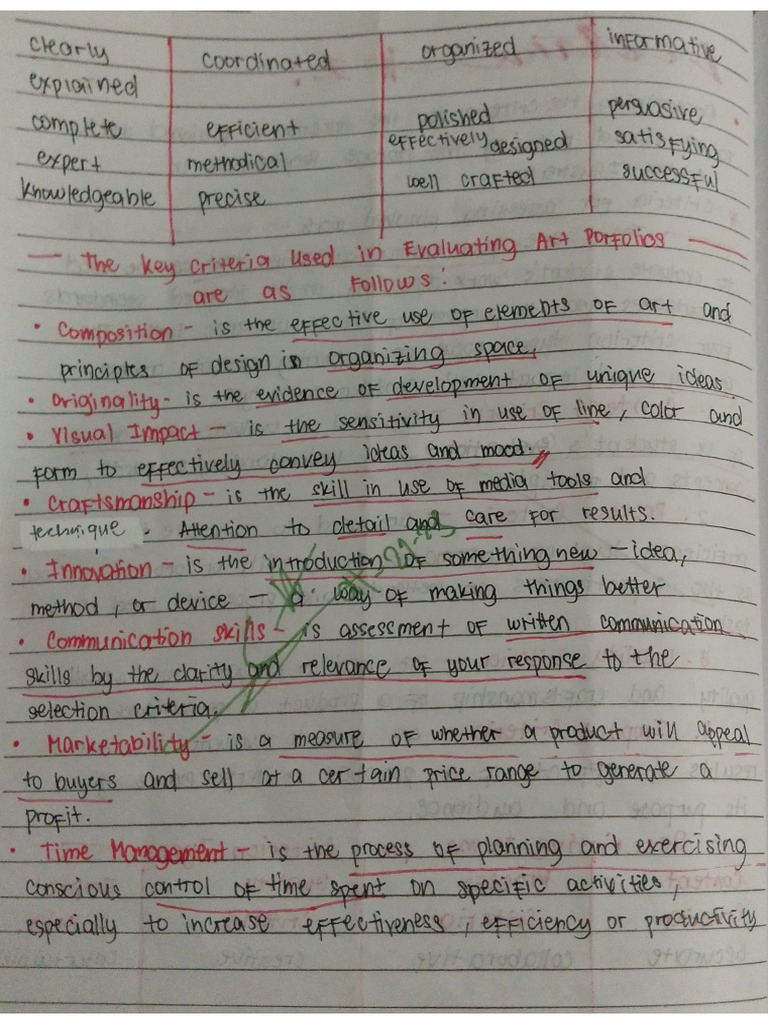 clearly coordinated organized informative
explained
complete efficient polished persuasive
expert methodical effectively designed satisfying
knowledgeable precise well crafted successful
— The Key Criteria Used in Evaluating Art Porfolios —
are as Follows:
• Composition - is the effective use of elements of art and
principles of design in organizing space.
• Originality - is the evidence of development of unique ideas.
• Visual Impact - is the sensitivity in use of line, color and
form to effectively convey ideas and mood.
• Craftsmanship - is the skill in use of media tools and
technique. Attention to detail and care for results.
• Innovation - is the introduction of something new - idea,
method, or device - a way of making things better
• Communication Skills - is assessment of written communication
skills by the clarity and relevance of your response to the
selection criteria.
• Marketability - is a measure of whether a product will appeal
to buyers and sell at a certain price range to generate a
profit.
• Time Management - is the process of planning and exercising
conscious control of time spent on specific activities,
especially to increase effectiveness, efficiency or productivity